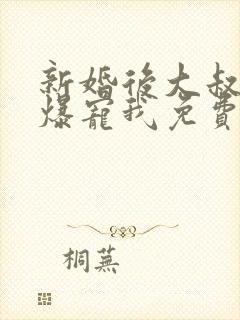 新婚後大叔
爆寵我免費
桐蕪